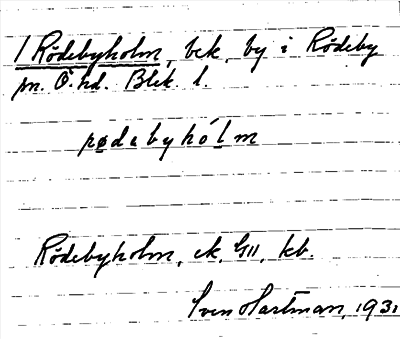 1 Rödebyholm, bek, by i Rödeby
sn. Ö. hd. Blek. l.
rødəbyhólm
Rödebyholm, ek, GII, kb.
Sven Hartman, 1931